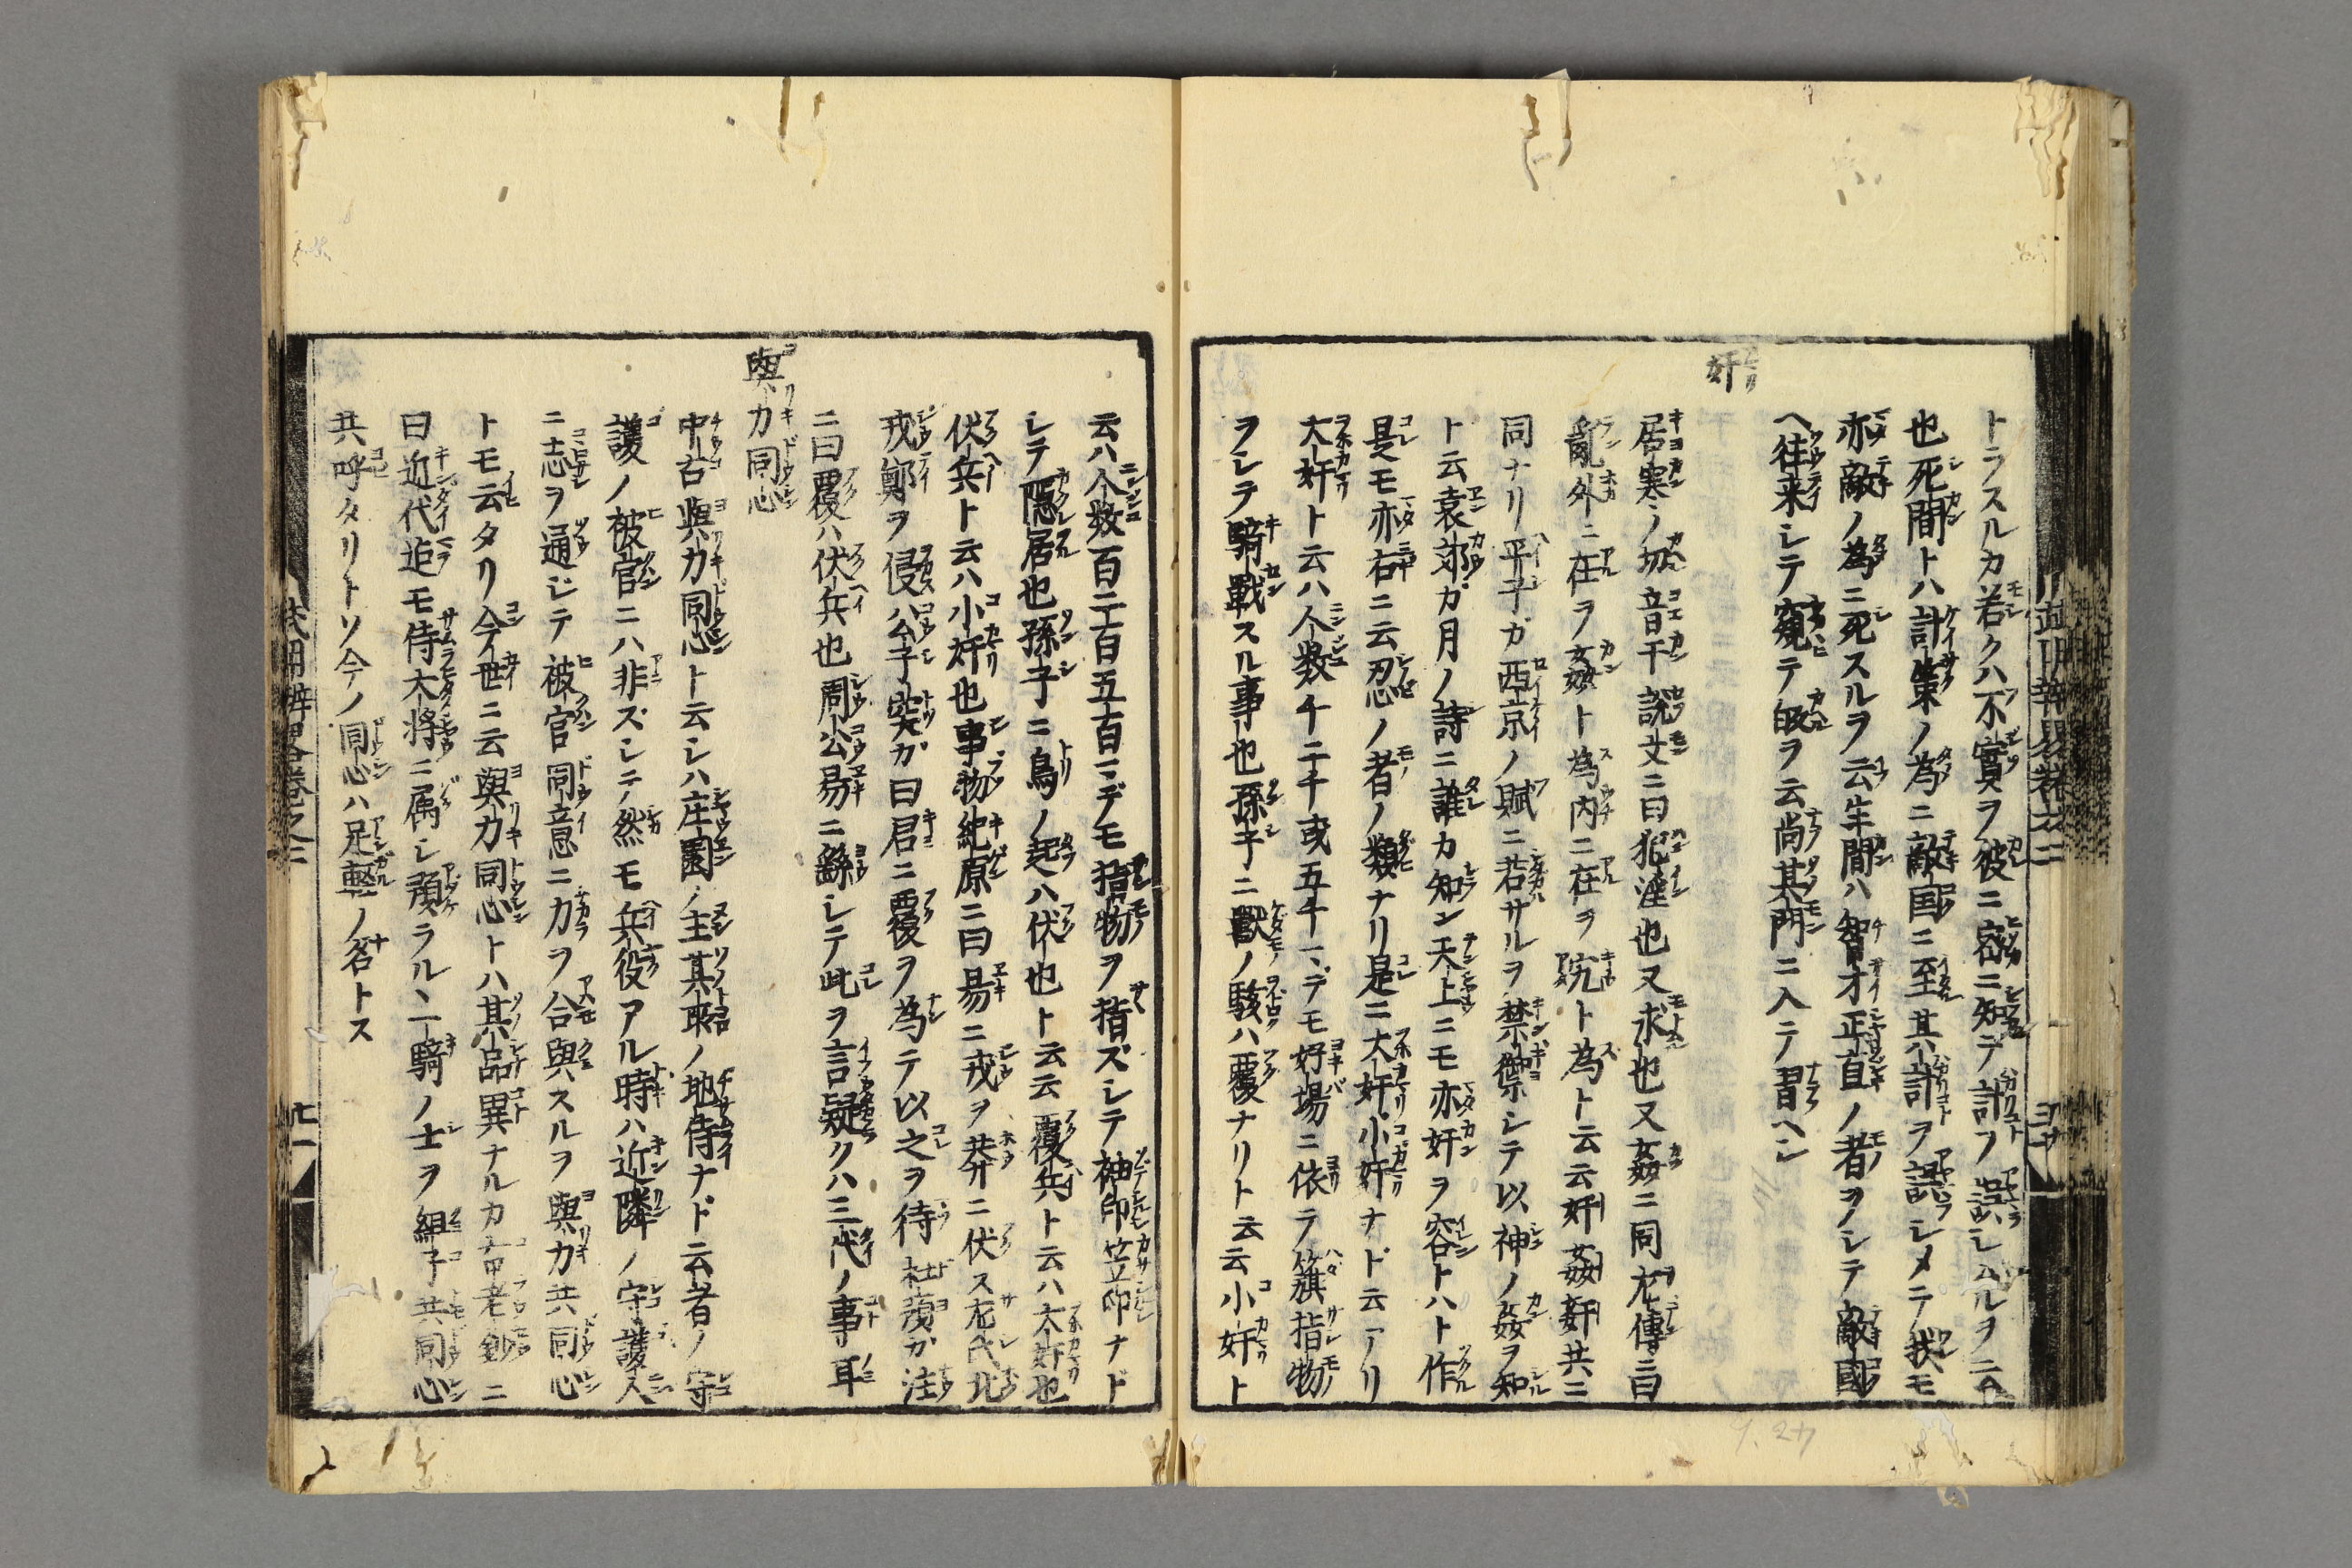 トラスルカ若クハ不實ヲ彼ニ密ニ知テ計ヲ誤レルヲ云
也死間トハ計策ノ為ニ敵国ニ至其計ヲ誤シメテ我モ
亦敵ノ為ニ死スルヲ云生間ハ智才正直ノ者ヲシテ敵國
ヘ往来シテ窺テ皈ヲ云尚其門ニ入テ習ヘシ
奸
居寒ノ切音干説文ニ曰犯淫也又求也又姦ニ同左傳ニ曰
亂外ニ在ヲ姦ト為内ニ在ヲ宄ト為ト云云奸姦姧共ニ
同ナリ平子ガ西京ノ賦ニ若サルヲ禁禦シテ以神ノ姦ヲ知
ト云袁郊ガ月ノ詩ニ誰カ知ン天上ニモ亦奸ヲ容トハト作
是モ亦右ニ云忍ノ者ノ類ナリ是ニ大奸小奸ナド云アリ
大奸ト云ハ人数千二千或五千マデモ好場ニ依テ簱指物
ヲシテ騎戰スル事也孫子ニ獸ノ駭ハ覆ナリト云云小奸ト
云ハ人数百二百五百マデモ指物ヲ指ズシテ袖印笠印ナド
シテ隠居也孫子ニ鳥ノ起ハ伏也ト云云覆兵ト云ハ大奸也
伏兵ト云ハ小奸也事物紀原ニ曰易ニ戎ヲ莽ニ伏ス左氏北
戎鄭ヲ侵公子突ガ曰君ニ覆ヲ為テ以之ヲ待杜預ガ注
ニ曰覆ハ伏兵也周公易ニ繇シテ此ヲ言疑クハ三代ノ事耳
與力同心
中古與力同心ト云シハ庄園ノ主其所ノ地侍ナド云者ノ守
護ノ被官ニハ非ズシテ然モ兵役アル時ハ近隣ノ守護人
ニ志ヲ通ジテ被官同意ニ力ヲ合與スルヲ與力共同心
トモ云タリ今世ニ云與力同心トハ其品異ナルカ古老鈔ニ
曰近代迄モ侍大將ニ属シ預ラル一騎ノ士ヲ組子共同心
共呼タリトソ今ノ同心ハ足軽ノ名トス
武用辨畧巻之二